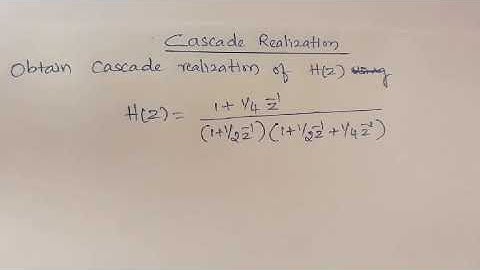 Cascade Realization
Obtain Cascade realization of H(z)
H(z) = 1 + 1/4 z⁻¹
(1+1/2 z⁻¹) (1+1/2 z⁻¹ + 1/4 z⁻²)